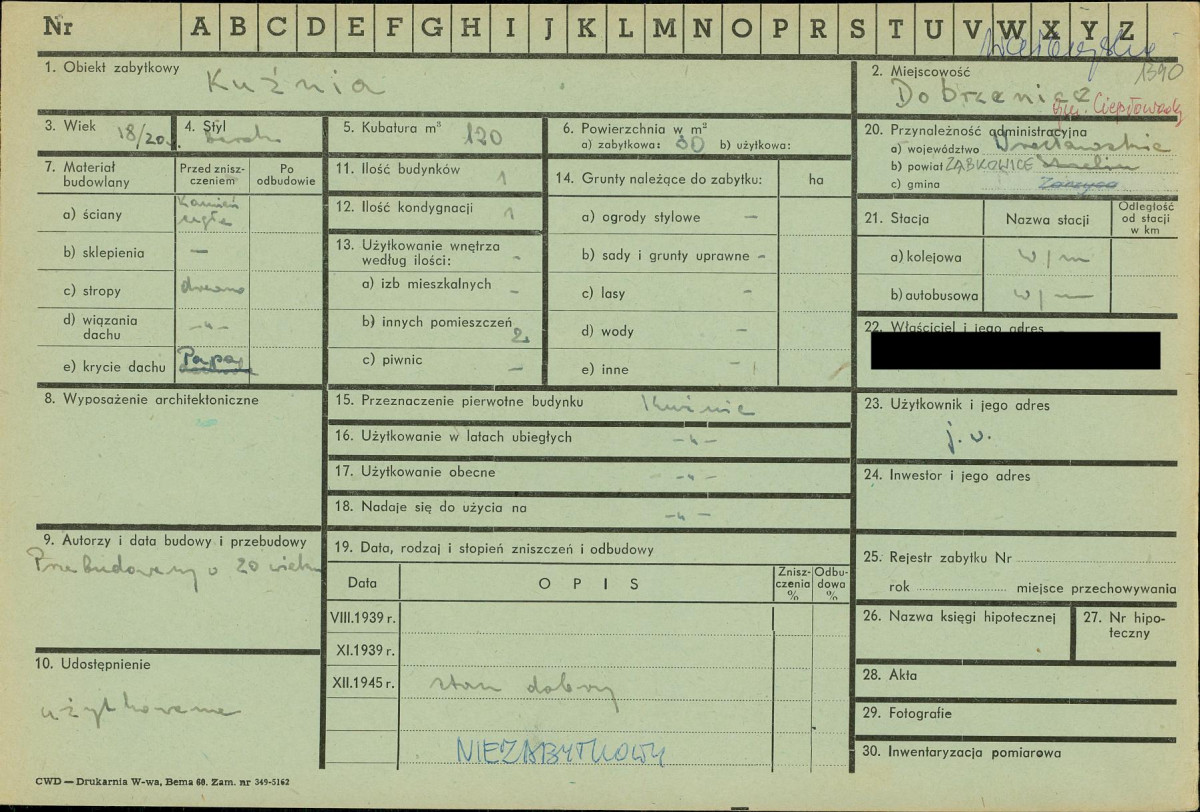 Nr A B C D E F G H I J K L M N O P R S T U V W X Y Z
1390
1. Obiekt zabytkowy Kuźnia
2. Miejscowość
Dobrzenice
gm. Ciepłowody
3. Wiek 18/20
4. Styl barok
5. Kubatura m³ 120
6. Powierzchnia w m²
a) zabytkowa: 30 b) użytkowa:
20. Przynależność administracyjna
a) województwo Wrocławskie
b) powiat ZĄBKOWICE
c) gmina
7. Materiał budowlany
Przed zniszczeniem
Po odbudowie
a) ściany Kamień cegła
b) sklepienia —
c) stropy drewno
d) wiązania dachu -"-
e) krycie dachu Papa
11. Ilość budynków 1
12. Ilość kondygnacji 1
13. Użytkowanie wnętrza według ilości: -
a) izb mieszkalnych -
b) innych pomieszczeń 2
c) piwnic —
14. Grunty należące do zabytku: ha
a) ogrody stylowe —
b) sady i grunty uprawne -
c) lasy -
d) wody —
e) inne -
21. Stacja Nazwa stacji Odległość od stacji w km
a) kolejowa w/m
b) autobusowa w/m
22. Właściciel i jego adres
8. Wyposażenie architektoniczne
15. Przeznaczenie pierwotne budynku Kuźnia
16. Użytkowanie w latach ubiegłych -"-
17. Użytkowanie obecne -"-
18. Nadaje się do użycia na -"-
23. Użytkownik i jego adres
j.w.
24. Inwestor i jego adres
9. Autorzy i data budowy i przebudowy
Przebudowany w 20 wieku
19. Data, rodzaj i stopień zniszczeń i odbudowy
Data OPIS Zniszczenia % Odbudowa %
VIII.1939 r.
XI.1939 r.
XII.1945 r. stan dobry
NIEZABYTKOWY
10. Udostępnienie
użytkowane
25. Rejestr zabytku Nr
rok miejsce przechowywania
26. Nazwa księgi hipotecznej
27. Nr hipoteczny
28. Akta
29. Fotografie
30. Inwentaryzacja pomiarowa
CWD — Drukarnia W-wa, Bema 60. Zam. nr 349-5162